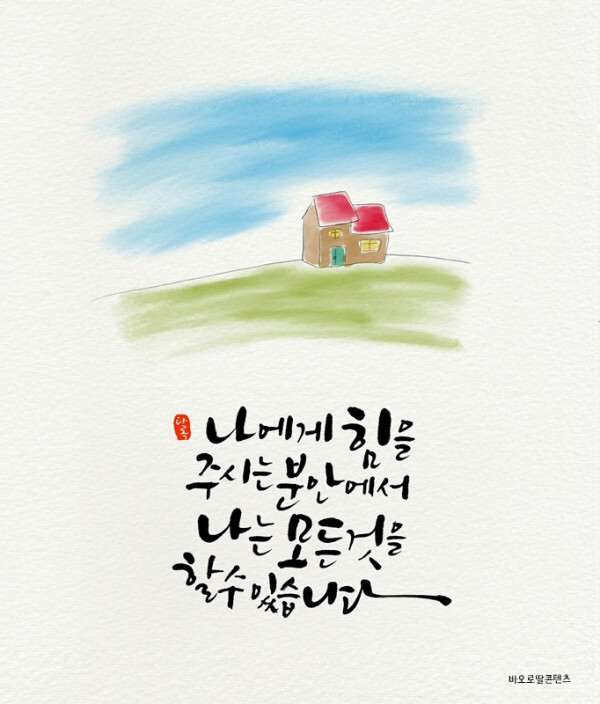 다옥
나에게 힘을
주시는 분안에서
나는 모든것을
할수있습니다
바오로딸콘텐츠